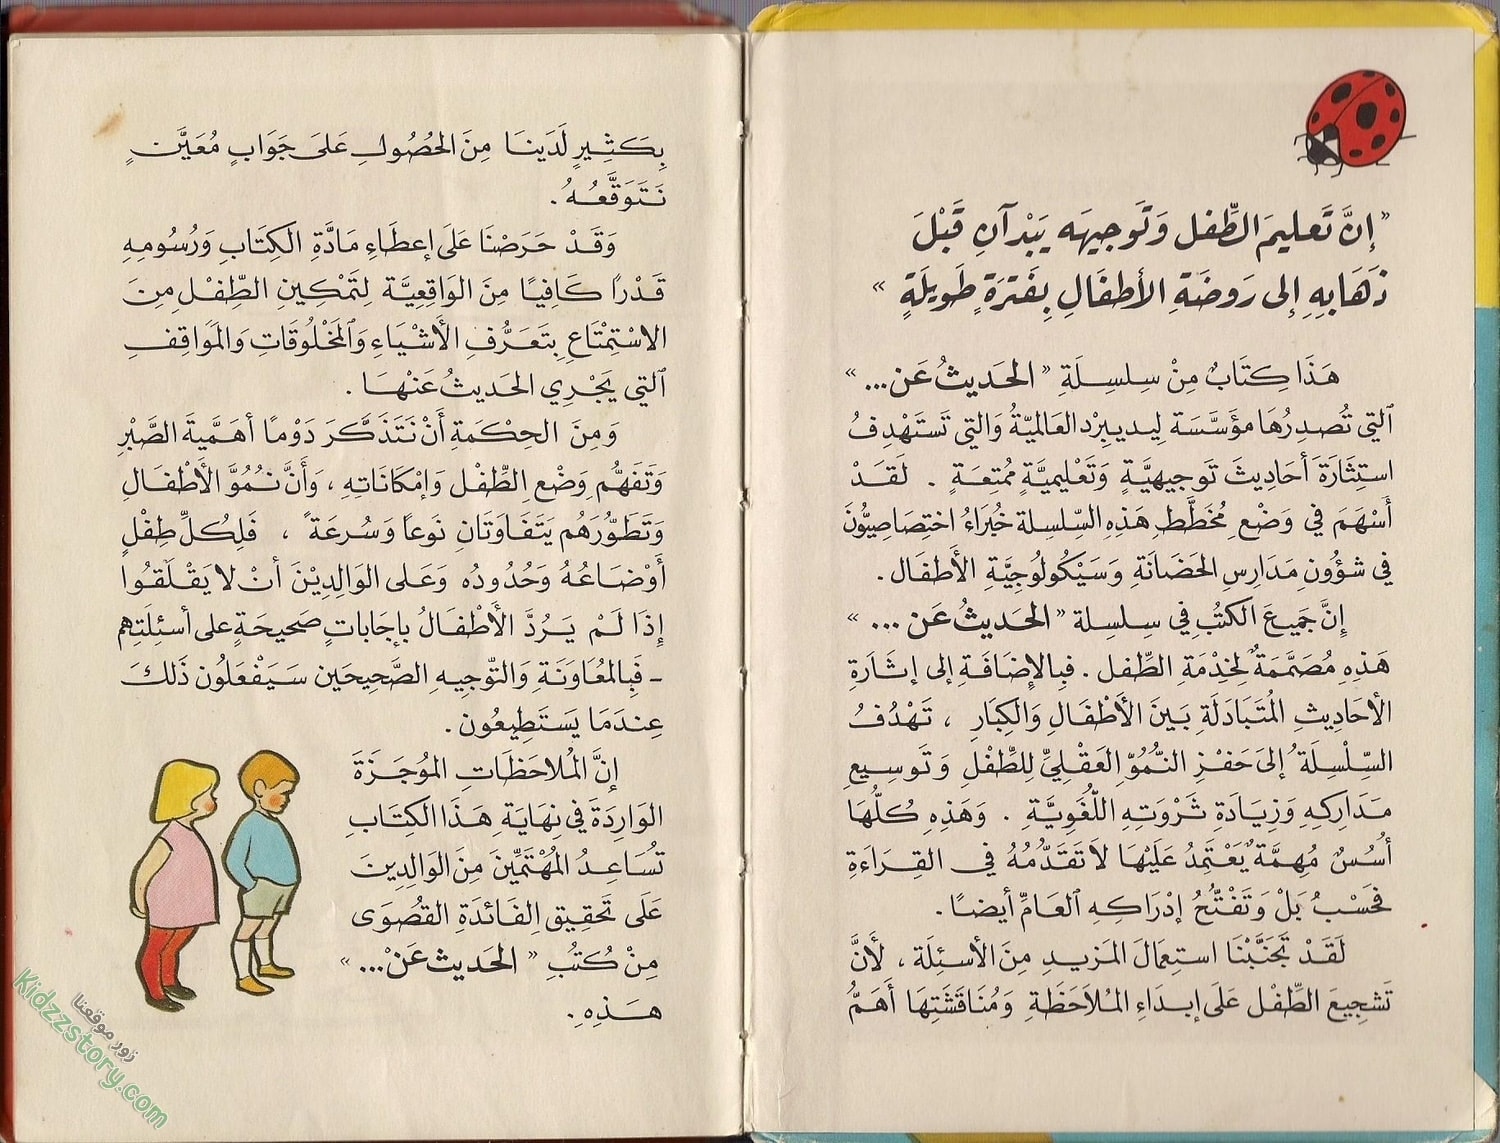 « إِنَّ تَعليمَ الطِّفل وَتَوجيهَه يَبْدآنِ قَبْلَ
ذَهَابِهِ إلى رَوضَةِ الأطفَالِ بِفَترَةٍ طَويلَةٍ »
هَذَا كِتَابٌ مِنْ سِلسِلَةِ « الحَديثُ عَن... »
التي تُصدِرُهَا مؤَسَّسَة ليديبرد العَالميّةُ وَالتي تَستَهدِفُ
استِثَارَةَ أحَادِيثَ تَوجيهيَّةٍ وَتَعْليميَّةٍ مُمتِعَةٍ . لَقَدْ
أَسْهَمَ في وَضْعِ مُخَطَّطِ هَذِهِ السِّلسِلة خُبَراءُ اختِصَاصِيُّونَ
في شؤُونِ مَدَارسِ الحَضَانَةِ وَسَيْكولُوجِيَّةِ الأَطفَال .
إنَّ جَميعَ الكتُبِ في سِلسِلة « الحَديثُ عَن ... »
هَذِهِ مُصَمَّمَةٌ لخِدْمَةِ الطِّفل . فبِالإِضَافَةِ إلى إثَارَةِ
الأحَادِيثِ المُتَبَادَلَةِ بَينَ الأَطْفَالِ وَالكِبَارِ ، تَهْدُفُ
السِّلْسِلَةُ إلىَ حَفْزِ النُّمُوِّ العَقْليِّ لِلطِّفْلِ وَتَوسِيعِ
مَدَاركِهِ وَزيَادَةِ ثَرْوَتِهِ اللُّغَويَّةِ . وَهَذِهِ كُلُّهَا
أُسُسٌ مُهِمَّةٌ يَعْتَمِدُ عَلَيْهَا لا تَقَدُّمُهُ في القِراءَةِ
فَحَسْبُ بَلْ وَتَفْتُّحُ إدْرَاكِهِ العَامِّ أيضًا .
لَقَدْ تَجَنَّبْنَا استِعمَالَ المَزيدِ مِنَ الأسئِلَة ، لأَنَّ
تَشجِيعَ الطِّفْل عَلَى إبدَاءِ المُلاَحَظَةِ وَمُنَاقَشَتِهَا أَهَمُّ
بِكَثِيرٍ لَدَينَا مِنَ الحُصُولِ عَلىَ جَوَابٍ مُعَيَّنٍ
نَتَوَقَّعُهُ .
وَقَدْ حَرَصْنَا عَلىَ إعطَاءِ مَادَّةِ الكِتَابِ وَرُسُومِهِ
قَدْراً كَافِيًا مِنَ الوَاقِعِيَّة لِتَمْكينِ الطِّفْلِ مِنَ
الاسْتِمْتَاعِ بِتَعَرُّفِ الأَشْيَاءِ وَالمَخْلُوقَاتِ وَالمَوَاقِفِ
التي يَجْرِي الحَديثُ عَنْهَا .
وَمِنَ الحِكْمَةِ أَنْ نَتَذَكَّرَ دَوْمًا أهَمَّيةَ الصَّبْرِ
وَتَفَهُّمِ وَضْعِ الطِّفْل وَإمْكَانَاتِهِ ، وَأَنَّ نُمُوَّ الأَطْفَالِ
وَتَطَوُّرَهُم يَتَفَاوَتَانِ نَوعاً وَسُرعَةً ، فَلِكُلِّ طِفْلٍ
أَوْضَاعُهُ وَحُدُودُه وَعَلى الوَالِدِيْنَ أنْ لا يَقْلَقُوا
إذَا لَمْ يَرُدَّ الأَطْفَالُ بإجَابَاتٍ صَحيحَةٍ على أسئِلَتِهم
- فَبِالمُعَاوَنَةِ وَالتّوجيهِ الصَّحيحَين سَيَفْعَلُون ذَلكَ
عِندَمَا يَستَطِيعُون .
إنَّ المُلاحَظَاتِ المُوجَزَةَ
الوَارِدَةَ في نِهَايَةِ هَذَا الكِتَابِ
تُسَاعِدُ المُهْتَمِّينَ مِنَ الوَالِدِينَ
عَلَى تَحْقِيقِ الفَائدَةِ القُصْوَى
مِنْ كُتُبِ « الحَديث عَنْ... »
هَذِهِ .
زور موقعنا
Kidzzstory.com